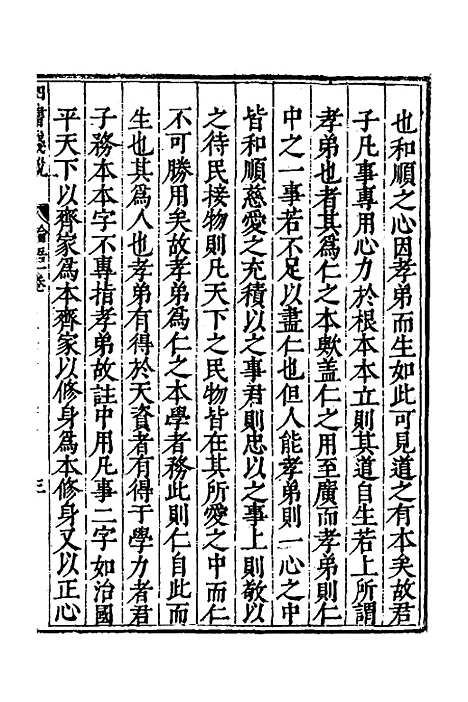 也和順之心因孝弟而生如此可見道之有本矣故君
子凡事專用心力於根本本立則其道自生若上所謂
孝弟也者其爲仁之本歟盖仁之用至廣而孝弟則仁
中之一事若不足以盡仁也但人能孝弟則一心之中
皆和順慈愛之充積以之事君則忠以之事上則敬以
之待民接物則凡天下之民物皆在其所愛之中而仁
不可勝用矣故孝弟爲仁之本學者務此則仁自此而
生也其爲人也孝弟有得於天資者有得于學力者君
子務本本字不專指孝弟故註中用凡事二字如治國
平天下以齊家爲本齊家以修身爲本修身又以正心
四書淺說 論語一卷 三